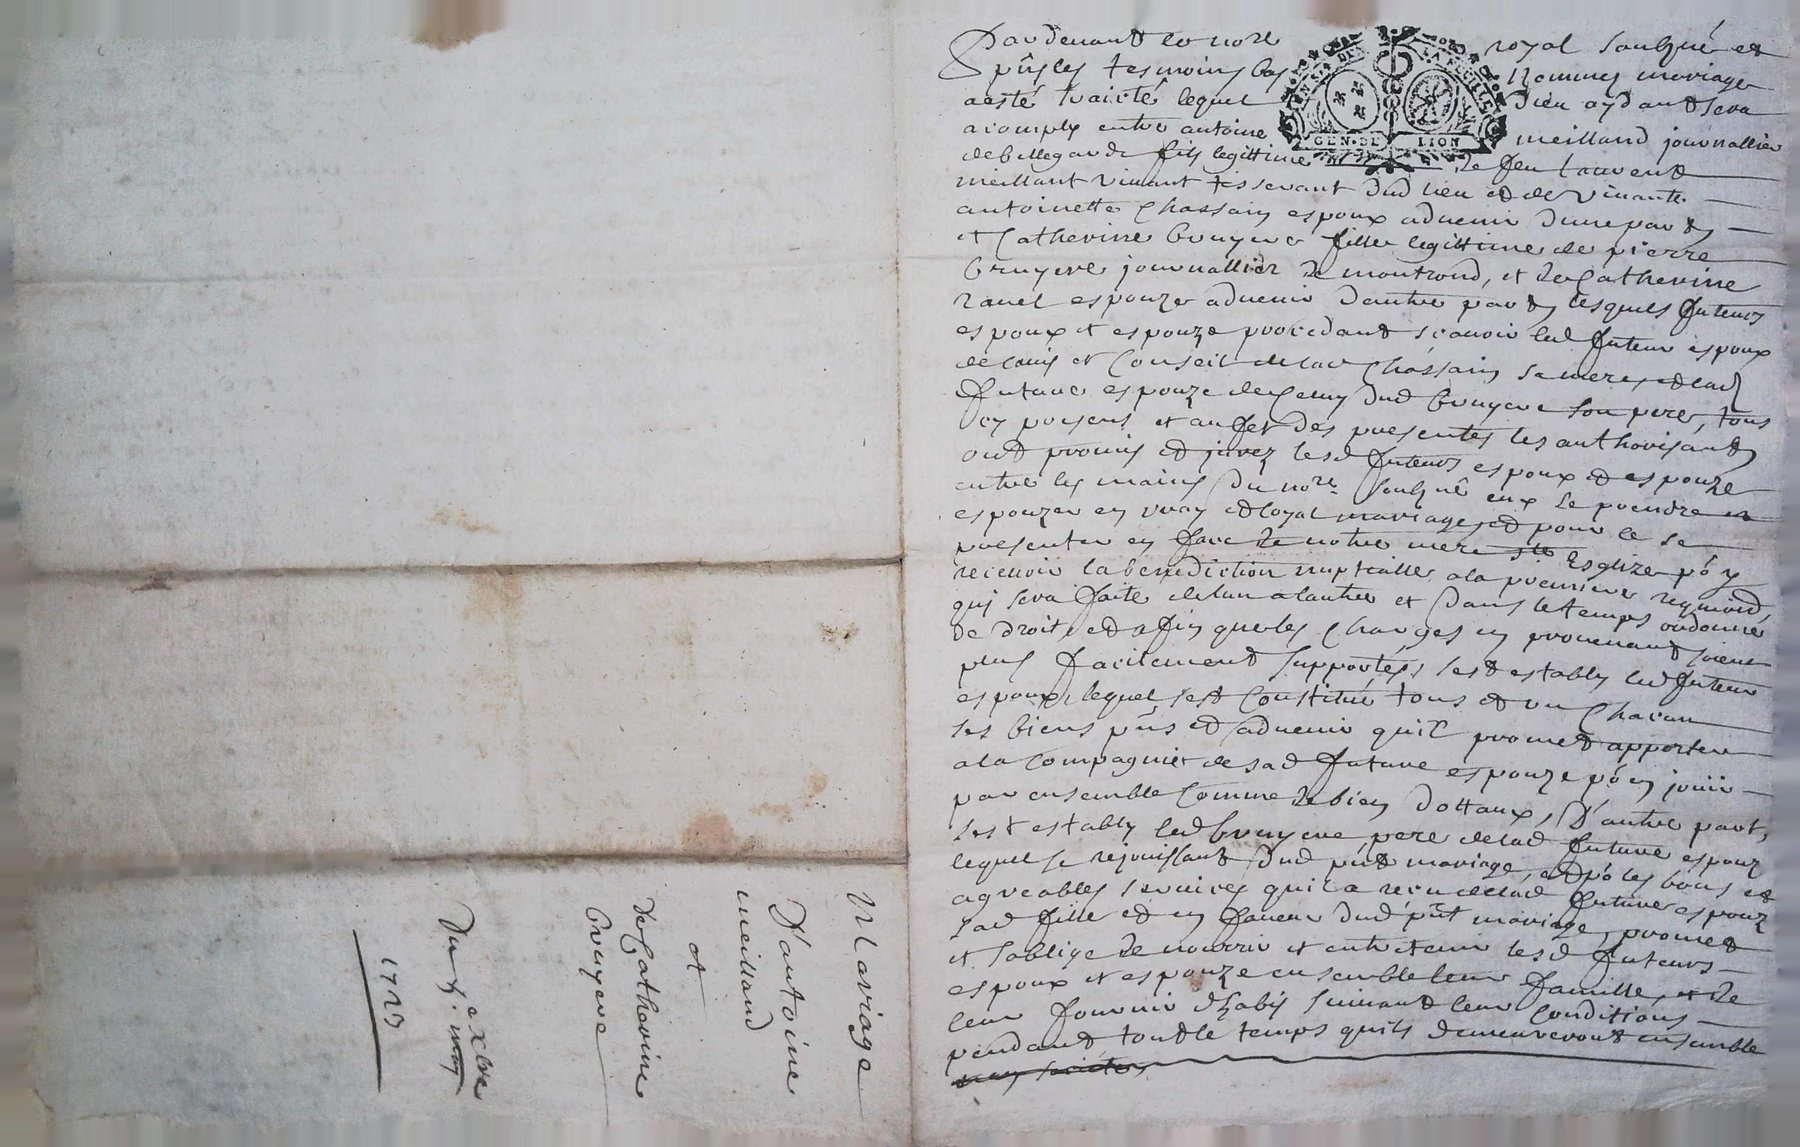 Pardevant le nore royal soubzné et
pñs les tesmoins bas nommes mariage
a esté traicté lequel Dieu aydant sera
acomply entre antoine meilland journallier
de bellegarde fils legittime de feu Laurent
meillant vivant tisserant dud lieu et de vivante
antoinette Chassain espoux advenir dune part
et Catherine bruyere fille legittime de pierre
bruyere journallier de montrond, et de Catherine
ravel espouze advenir dautre part, lesquels futeurs
espoux et espouze procedant scavoir led futeur espoux
de lavis et Conseil de lad Chassain sa mere, et lad
future espouze de Celluy dud bruyere son pere, tous
icy presens et au fet des presentes les authorisant
ont promis et jurez lesd futeurs espoux et espouze
entre les mains du nore soubzné eux se prendre et
espouzer en vray et loyal mariage, et pour ce se
presenter en face de notre mere ste Esglize pô y
recevoir la benediction nuptialle, a la premiere requisiõn
qui sera faite de lun a lautre et dans le temps ordonné
de droit, et afin que les Charges en provenant soient
plus facilement supportés, sest estably led futeur
espoux, lequel sest Constitué tous et un Chacun
ses biens pñs et advenir quil promet apporter
a la Compagnie de sad future espouze pô en jouir
par ensemble Comme de bien dottaux, D'autre part,
sest estably led bruyere pere de lad future espouz
lequel se rejouissant dud pñt mariage, et pô les bons et
agreables services quil a receu de lad future espouz
sad fille et en faveur dud pñt mariage, promet
et soblige de nourrir et entretenir lesd futeurs
espoux et espouze ensemble leur famille, et de
leur fournir dhabis suivant leur Conditions
pendant tout le temps quils demeureront ensemble
GEN. DE LION
Mariage
D'antoine
meilland
et
de Catherine
bruyere
Du
1723